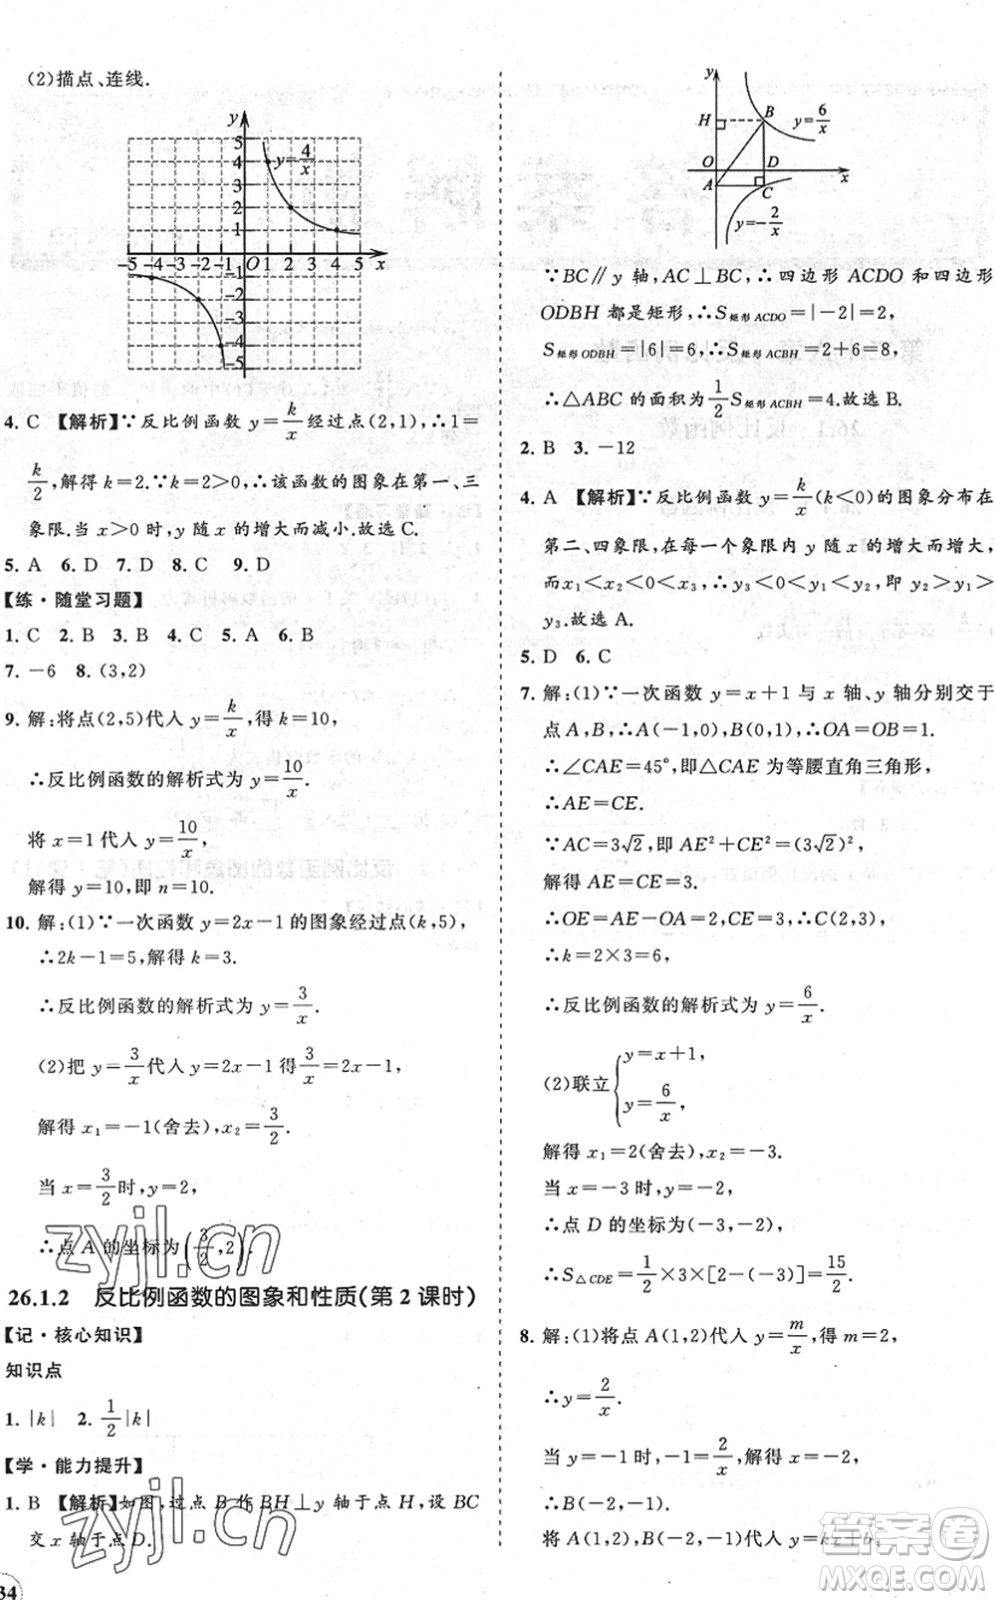 (2)描点、连线.
y
5
4
3
2
1
y=4/x
-5 -4 -3 -2 -1 O 1 2 3 4 5 x
-1
-2
-3
-4
-5
4. C 【解析】∵反比例函数 y=k/x 经过点(2,1),∴1=
k/2,解得 k=2.∵k=2>0,∴该函数的图象在第一、三
象限.当 x>0 时,y 随 x 的增大而减小.故选 C.
5. A 6. D 7. D 8. C 9. D
【练·随堂习题】
1. C 2. B 3. B 4. C 5. A 6. B
7. -6 8. (3,2)
9. 解:将点(2,5)代入 y=k/x,得 k=10,
∴反比例函数的解析式为 y=10/x.
将 x=1 代入 y=10/x,
解得 y=10,即 n=10.
10. 解:(1)∵一次函数 y=2x-1 的图象经过点(k,5),
∴2k-1=5,解得 k=3.
∴反比例函数的解析式为 y=3/x.
(2)把 y=3/x 代入 y=2x-1 得 3/x=2x-1,
解得 x₁=-1(舍去),x₂=3/2.
当 x=3/2 时,y=2,
∴点 A 的坐标为(3/2,2).
26.1.2 反比例函数的图象和性质(第 2 课时)
【记·核心知识】
知识点
1. |k| 2. 1/2|k|
【学·能力提升】
1. B 【解析】如图,过点 B 作 BH⊥y 轴于点 H,设 BC
交 x 轴于点 D.
34
y
H
B
y=6/x
O
D
x
A
C
y=-2/x
∵BC∥y 轴,AC⊥BC,∴四边形 ACDO 和四边形
ODBH 都是矩形,∴S矩形ACDO=|-2|=2,
S矩形ODBH=|6|=6,∴S矩形ACBH=2+6=8,
∴△ABC 的面积为 1/2 S矩形ACBH=4.故选 B.
2. B 3. -12
4. A 【解析】∵反比例函数 y=k/x(k<0)的图象分布在
第二、四象限,在每一个象限内 y 随 x 的增大而增大,
而 x₁<x₂<0<x₃,∴y₃<0<y₁<y₂,即 y₂>y₁>
y₃.故选 A.
5. D 6. C
7. 解:(1)∵一次函数 y=x+1 与 x 轴、y 轴分别交于
点 A,B,∴A(-1,0),B(0,1),∴OA=OB=1.
∴∠CAE=45°,即△CAE 为等腰直角三角形,
∴AE=CE.
∵AC=3√2,即 AE²+CE²=(3√2)²,
解得 AE=CE=3.
∴OE=AE-OA=2,∴C(2,3),
∴k=2×3=6,
∴反比例函数的解析式为 y=6/x.
(2)联立{y=x+1,
y=6/x,
解得 x₁=2(舍去),x₂=-3.
当 x=-3 时,y=-2,
∴点 D 的坐标为(-3,-2),
∴S△CDE=1/2×3×[2-(-3)]=15/2.
8. 解:(1)将点 A(1,2)代入 y=m/x,得 m=2,
∴y=2/x.
当 y=-1 时,-1=2/x,解得 x=-2,
∴B(-2,-1).
将 A(1,2),B(-2,-1)代入 y=kx+b,
zyjl.cn
zyjl.cn
答案圈
MXQE.COM